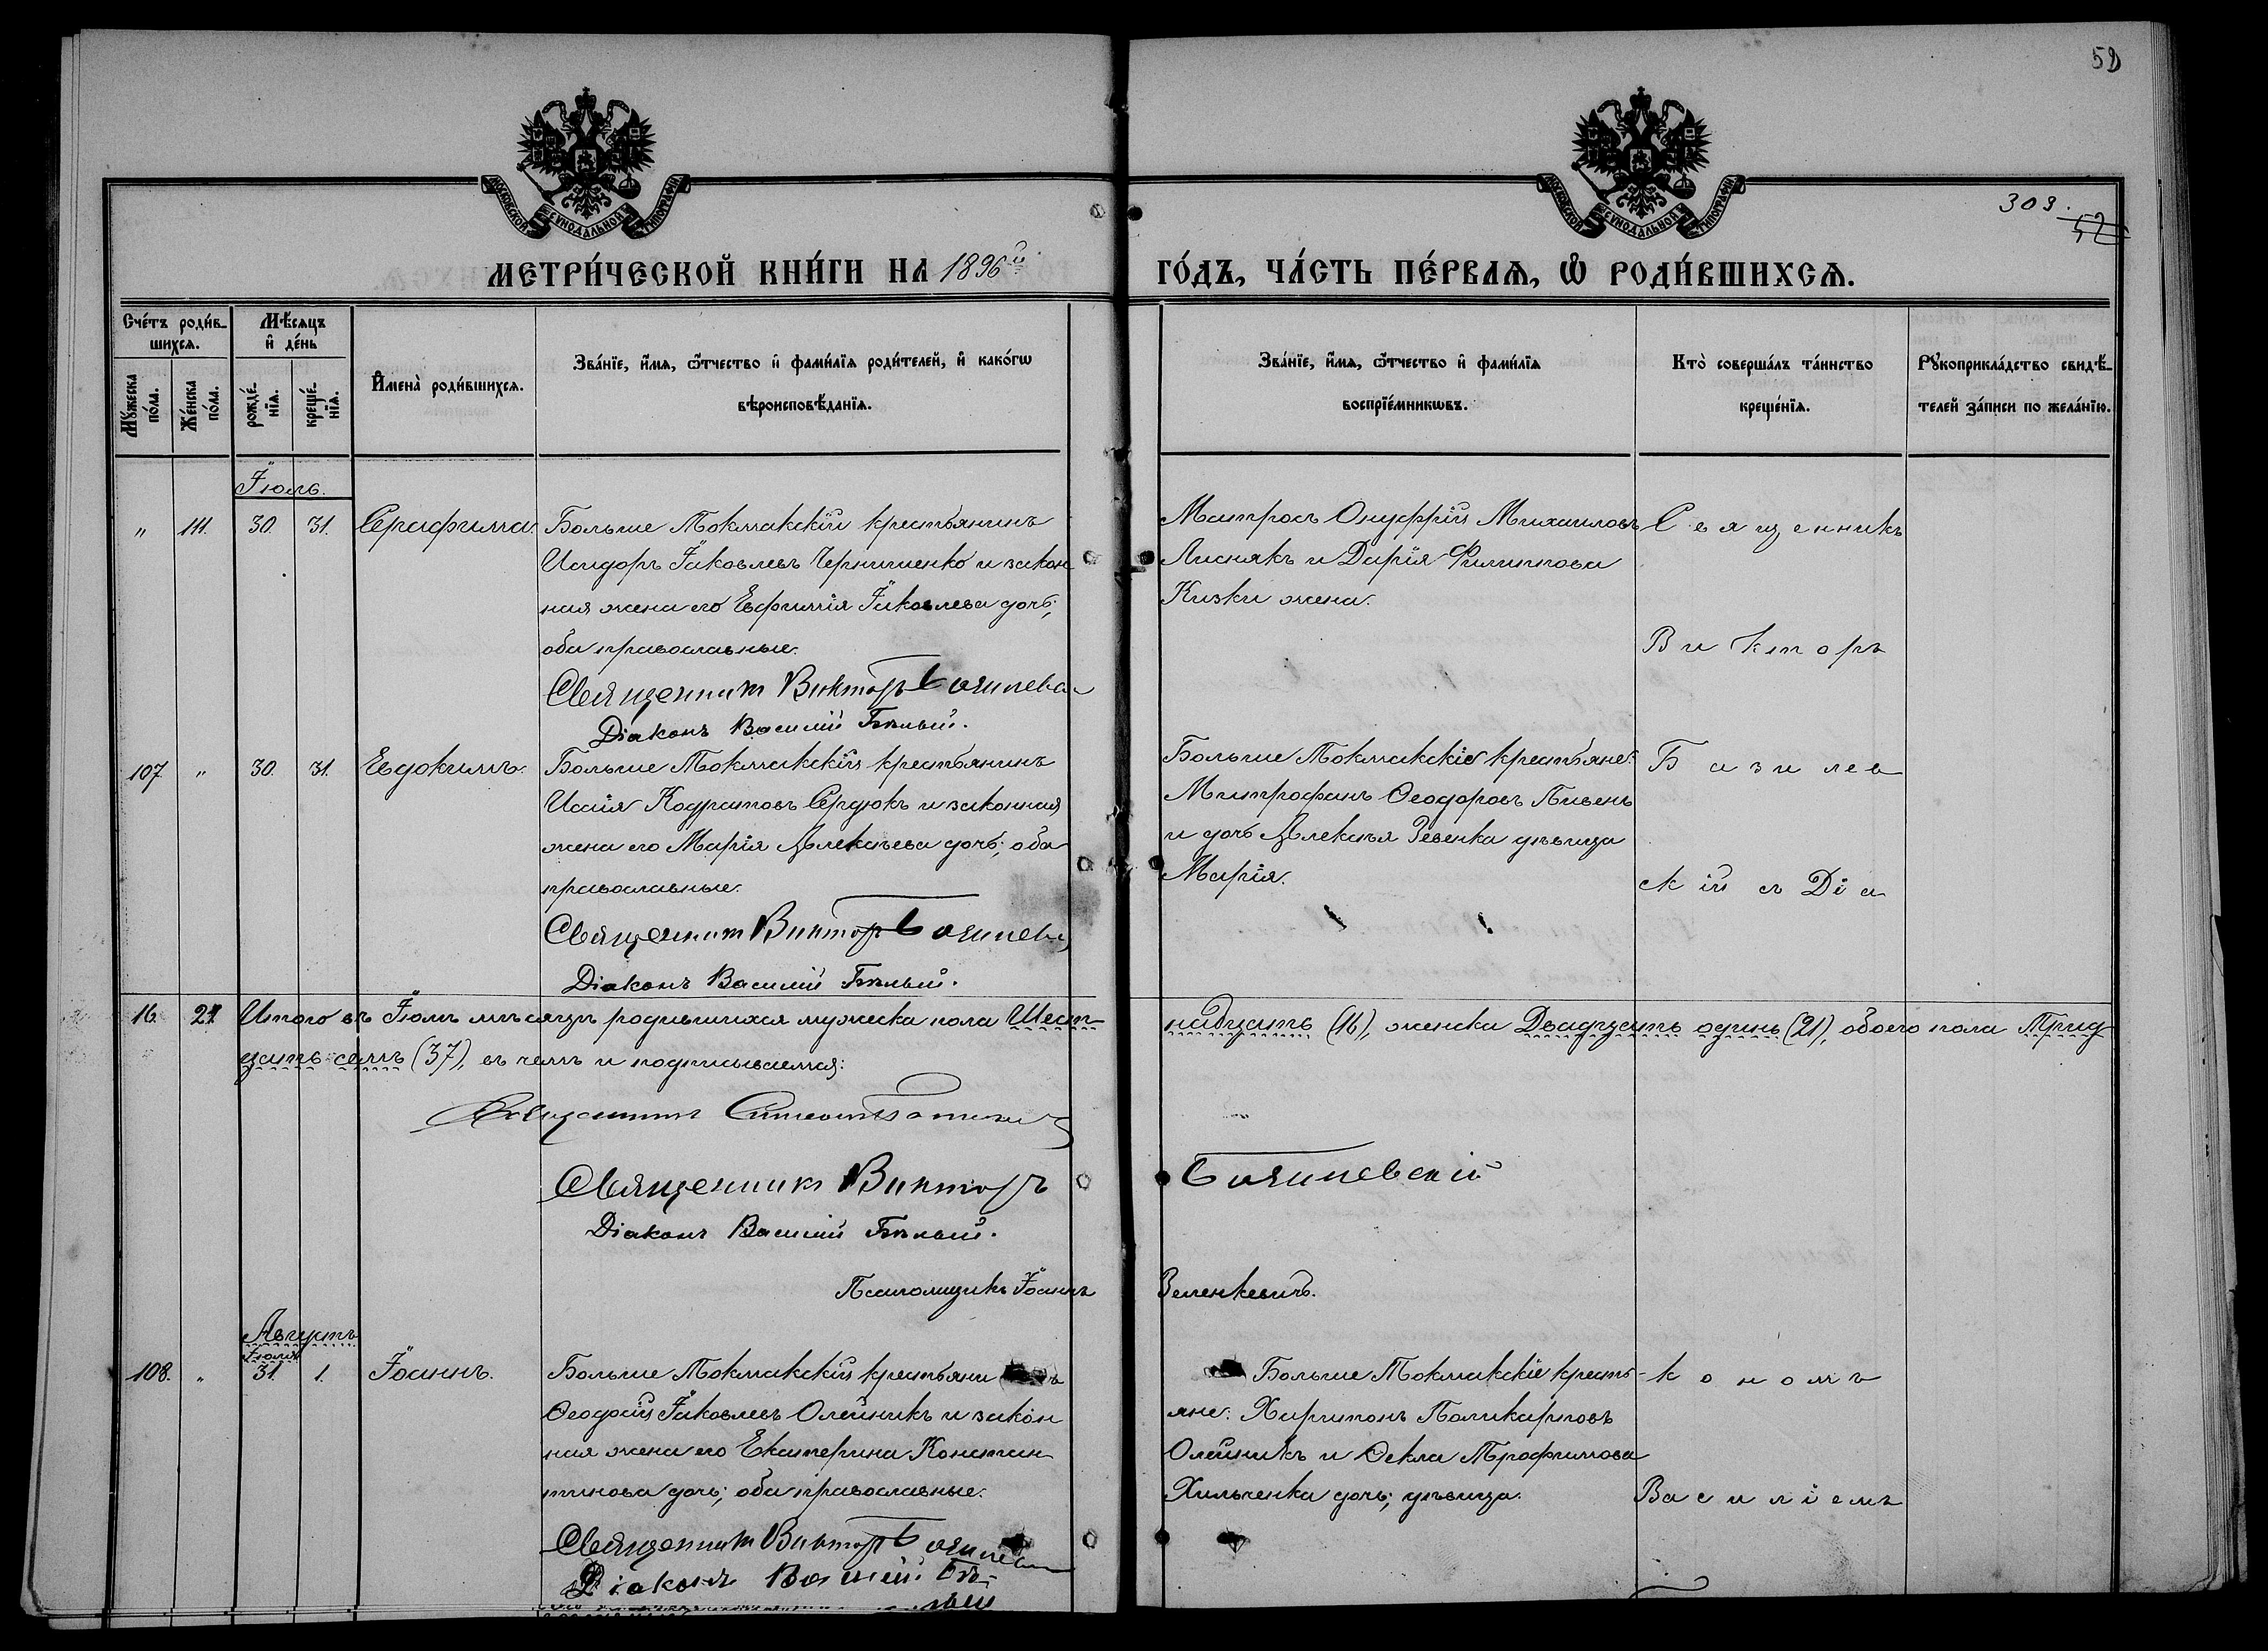 52
МОСКОВСКОЙ СѴНОДАЛЬНОЙ ТИПОГРАФІИ
МОСКОВСКОЙ СѴНОДАЛЬНОЙ ТИПОГРАФІИ
303.
52
МЕТРИ́ЧЕСКОЙ КНИ́ГИ НА 1896й
ГО́ДЪ, ЧА́СТЬ ПЕ́РВАЯ, Ѡ РОДИ́ВШИХСѦ.
Сче́тъ роди́в-
шихсѧ.
Мѣ́сѧцъ
и де́нь
Мꙋ́жеска
по́ла.
Же́нска
по́ла.
рожде́-
нїѧ.
креще́-
нїѧ.
Имена̀ роди́вшихсѧ.
Зва́нїе, и́мѧ, ѻ́тчество и фами́лїѧ роди́телей, и како́гѡ
вѣроисповѣ́данїѧ.
Зва́нїе, и́мѧ, ѻ́тчество и фами́лїѧ
воспрїе́мникѡвъ.
Кто̀ соверша́лъ та́инство
креще́нїѧ.
Рꙋкоприкла́дство свидѣ́-
телей за́писи по жела́нїю.
Іюль.
" 111. 30. 31. Серафима. Больше Токмакскій крестьянинъ
Исидоръ Іаковлевъ Чернишенко и закон
ная жена его Евфимія Іаковлева дочь;
оба православные.
Священникъ Викторъ Базилевс
Діаконъ Василій Бѣлый.
Матросъ Онуфрій Михаиловъ
Лиснякъ и Дарія Филиппова
Кизки жена.
Священникъ
Викторъ
107 " 30. 31. Евдокимъ. Больше Токмакскій крестьянинъ
Исаія Кодратовъ Сердюкъ и законная
жена его Марія Алексѣева дочь; оба
православные.
Священникъ Викторъ Базилевс
Діаконъ Василій Бѣлый.
Больше Токмакскіе крестьяне:
Митрофанъ Ѳеодоровъ Пивень
и дочь Алексѣя Ревенка дѣвица
Марія.
Базилев
скій съ Діа
16. 21. Итого въ Іюлѣ мѣсяцѣ родившихся мужеска пола Шест-
надцать (16), женска Двадцать одинъ (21), обоего пола Трид-
цать семь (37), въ чемъ и подписываемся:
Священникъ
Священникъ Викторъ
Базилевскій
Діаконъ Василій Бѣлый.
Псаломщикъ Іоаннъ
Зеленкевичъ.
Августъ
Іюля
108. " 31. 1. Іоаннъ. Больше Токмакскій крестьянинъ
Ѳеодосій Іаковлевъ Олейникъ и закон
ная жена его Екатерина Констан
тинова дочь; оба православные.
Священникъ Викторъ Базилевс
Діаконъ Василій Бѣ-
лый
Больше Токмакскіе кресть-
яне: Харитонъ Поликарповъ
Олейникъ и Ѳекла Трофимова
Хильченка дочь; дѣвица.
кономъ
Василіемъ